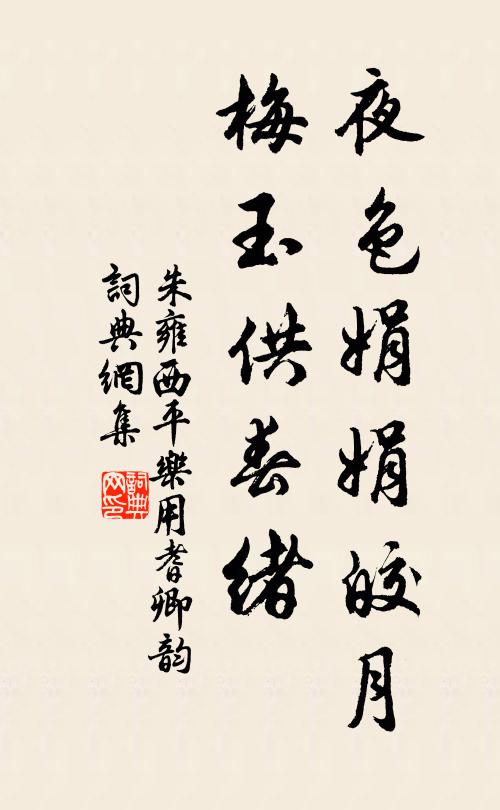 夜色娟娟皎月
梅玉供春緒
朱雍西平樂用耆卿韵
詞典網集
詞典
网印